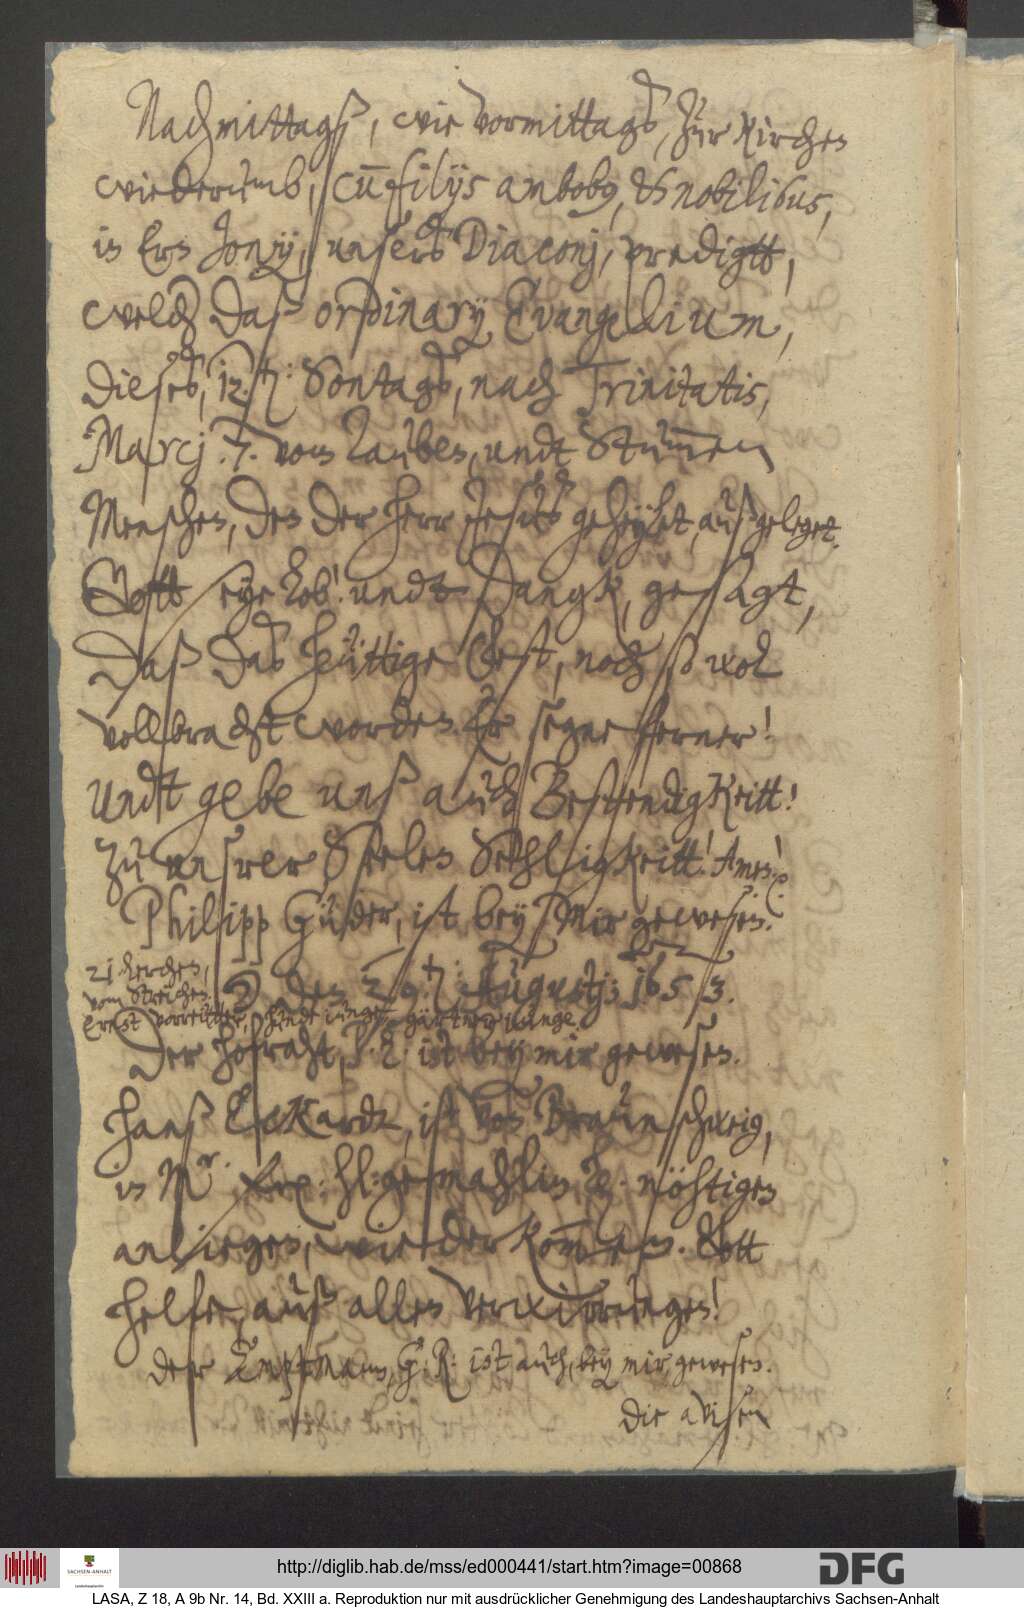 Nachmittagß, wie Vormittags, zur Kirchen
wiederumb, cũ filijs ambobus, & nobilibus,
in Ern Jonij, unsers Diaconj, predigtt,
welch daß ordinarij Evangelium,
dieses, 12. Sontags, nach Trinitatis,
Marcj. 7. vom Tauben, undt Stummen
Menschen, den der Herr Jesus geheylet, außgeleget.
Gott seye Lob! undt Dangk, gesagt,
Daß das heüttige fest, noch so wol
vollbracht worden. Er segne ferner!
Undt gebe unß auch Bestendigkeitt!
zu unsrer Seelen Sehligkeitt! Amen.
Philipp Güder, ist bey Mir gewesen.
21 Lerchen,
vom Streichen.
den 29. Augustj: 1653.
Ernst vorreütter, hunde iunge, gärtner iunge.
Der Hofraht, P. L. ist bey mir gewesen.
Hanß Eckardt, ist von Braunschweig,
in Mr. hl: gemahlin, nöhtigen
anliegen, wieder kommen. Gott
helfe, auß allen verwirrungen!
der Amptmann, G. R. ist auch, bey mir gewesen.
Die avisen
http://diglib.hab.de/mss/ed000441/start.htm?image=00868
SACHSEN-ANHALT
DFG
LASA, Z 18, A 9b Nr. 14, Bd. XXIII a. Reproduktion nur mit ausdrücklicher Genehmigung des Landeshauptarchivs Sachsen-Anhalt